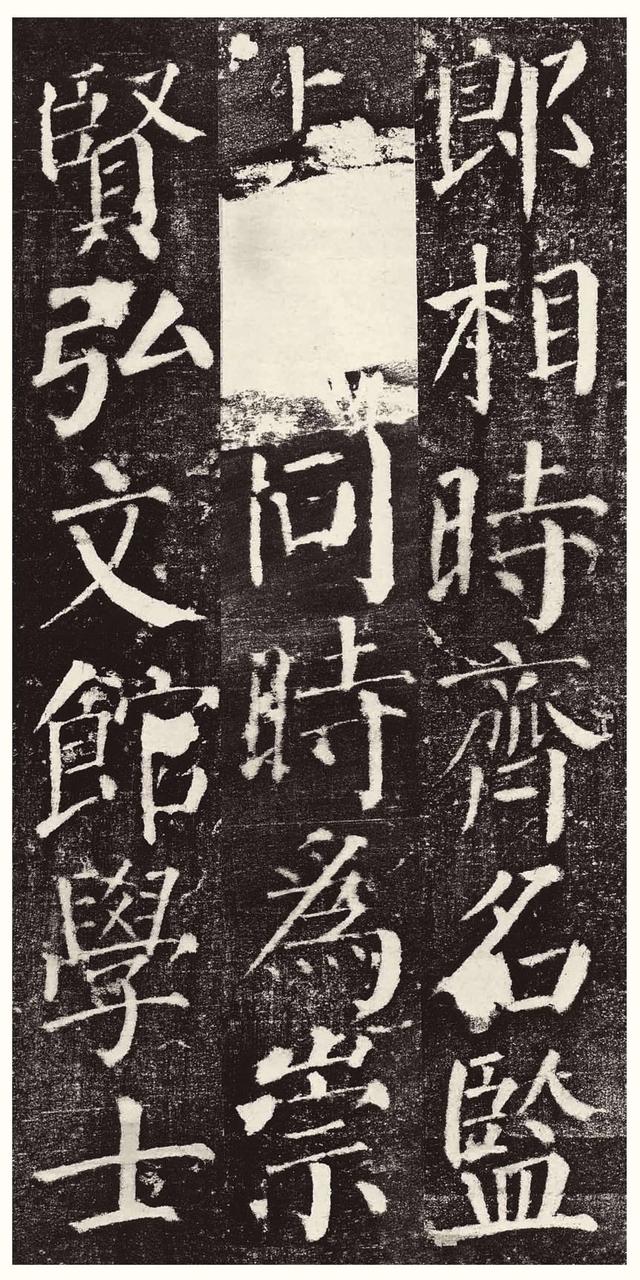 郎相時齊名監
上同時為崇
賢弘文館學士